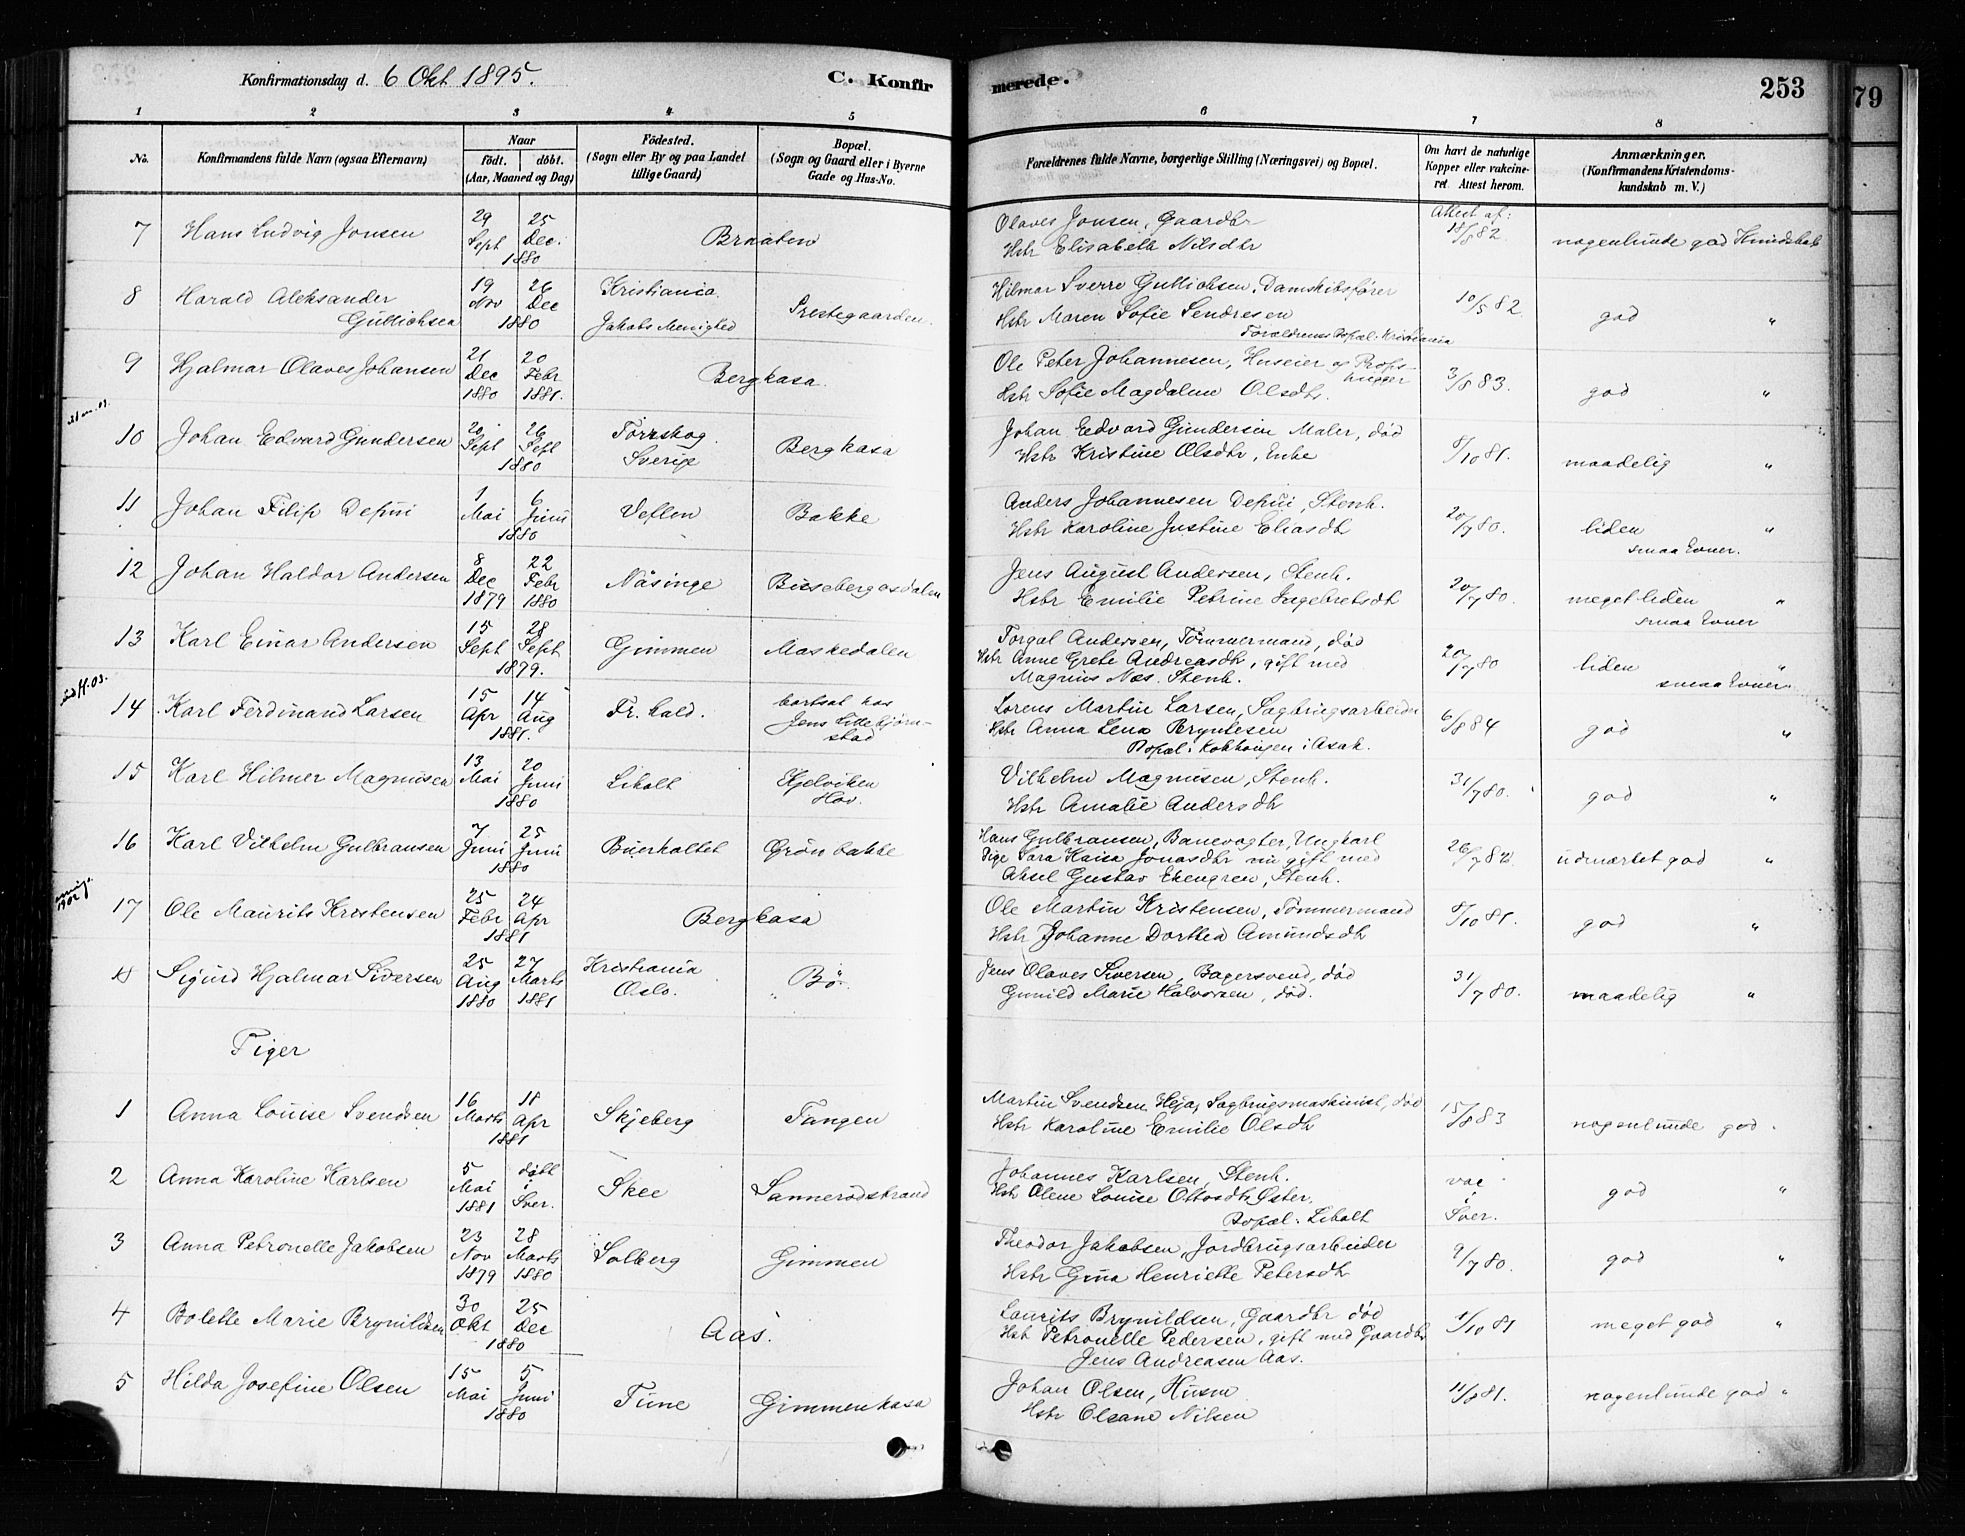 Konfirmationsdag d. 6 Okt 1895.
C. Konfirmerede.
253
79
1 2 3 4 5 6 7 8
No.
Konfirmandens fulde Navn (ogsaa Efternavn)
Naar
födt. döbt.
(Aar, Maaned og Dag)
Födested.
(Sogn eller By og paa Landet
tillige Gaard)
Bopæl.
(Sogn og Gaard eller i Byerne
Gade og Hus-No.
Forældrenes fulde Navne, borgerlige Stilling (Næringsvei) og Bopæl.
Om havt de naturlige
Kopper eller vakcine-
ret. Attest herom.
Anmærkninger.
(Konfirmandens Kristendoms-
kundskab m. V.)
7 Hans Ludvig Jonsen 29 Sept 25 Dec. 1880 Braaten
Olaves Jonsen, Gaardbr
Hstr Elisabeth Nilsdtr
Attest af: 18/8 82. nogenlunde god Kundskab
8 Harald Aleksander
Gullichsen 19 Nov 26 Dec 1880 Kristiania
Jakobs Menighed Prestegaarden.
Hilmar Sverre Gullichsen, Damskibsfører
Hstr Maren Sofie Sendresen
Forældrenes Bopæl: Kristiania
10/5 82. god "
9 Hjalmar Olaves Johansen 21 Dec 1880 20 Febr 1881. Bergkasa
Ole Peter Johannesen, Huseier og Props-
hugger
Hstr Sofie Magdalene Olsdtr.
3/8 83. god "
10 Johan Edvard Gundersen 20 Sept 26 Sept 1880 Torrskog
Sverige Bergkasa
Johan Edvard Gundersen Maler, død
Hstr Kristine Olsdtr, Enke
8/10 81. maadelig "
11 Johan Filip Depui 1 Mai 6 Juni 1880 Veflen Bakke
Anders Johannesen Depui, Stenh.
Hstr Karoline Justine Eliasdtr
20/7 80. liden "
smaa Evner.
12 Johan Haldor Andersen 8 Dec 1879 22 Febr 1880 Näsinge Bissebergsdalen
Jens August Andersen, Stenh.
Hstr Emilie Petrine Ingebretsdtr
20/7 80. meget liden "
smaa Evner
13 Karl Einar Andersen 15 Sept 28 Sept 1879. Gimmen Maskedalen
Torgal Andersen, Tömmermand, död
Hstr Anne Grete Andreasdtr, gift med
Magnus Næs. Stenh.
20/7 80 liden "
smaa Evner
14 Karl Ferdinand Larsen 15 Apr 14 Aug 1881. Fr.hald. bortsat hos
Jens Littebjørn-
stad
Lorens Martin Larsen, Sagbrugsarbeider
Hstr Anna Lena Bryntesen
Bopæl: Kokhougen i Asak.
6/8 84 god "
15 Karl Hilmer Magnusen 13 Mai 20 Juni 1880 Liholt Kjelviken
Hov.
Vilhelm Magnusen, Stenh.
Hstr Amalie Andersdtr
31/7 80. god "
16 Karl Vilhelm Gulbransen 7 Juni 25 Juni 1880 Buerholtet Grönbakke
Hans Gulbransen, Banevogter, Ungkarl
Pige Sara Kaisa Jonasdtr nu gift med
Aksel Gustav Ekengren, Stenh.
26/7 82. udmærket god "
17 Ole Maurits Kristensen 25 Febr 24 Apr 1881 Bergkasa
Ole Martin Kristensen, Tömmermand
Hstr Johanne Dorthea Amundsdtr
8/10 81. god "
18 Sigurd Hjalmar Siversen 25 Aug 1880 27 Marts 1881 Kristiania
Oslo. Bö
Jens Olaves Siversen, Bagersvend, död
Gunild Marie Halvorsen, død.
31/7 80. maadelig "
Piger
1 Anna Louise Svendsen 16 Marts 18 Apr 1881 Skjeberg Tangen
Martin Svendsen Heja, Sagbrugsmaskinist, död
Hstr Karoline Emilie Olsdtr
15/8 83 nogenlunde god
2 Anna Karoline Karlsen 5 Mai 1881 døbt i Sver. Skee Sannerødstrand
Johannes Karlsen, Stenh.
Hstr Olene Louise Ottosdtr Øster.
Bopæl: Liholt
vac i Sver. god "
3 Anna Petronelle Jakobsen 23 Nov 1879 28 Marts 1880 Solberg Gimmen
Theodor Jakobsen, Jordbrugsarbeider
Hstr Gina Henriette Petersdtr
9/7 80. god "
4 Bolette Marie Brynildsen 30 Okt 25 Dec 1880 Aas
Laurits Brynildsen, Gaardbr död
Hstr Petronelle Pedersen, gift med Gaardbr
Jens Andreasen Aas.
1/10 81 meget god "
5 Hilda Josefine Olsen 15 Mai 5 Juni 1880 Tune Gimmenkasa
Johan Olsen, Husm
Hstr Oleane Nilsen
11/8 81. nogenlunde god "